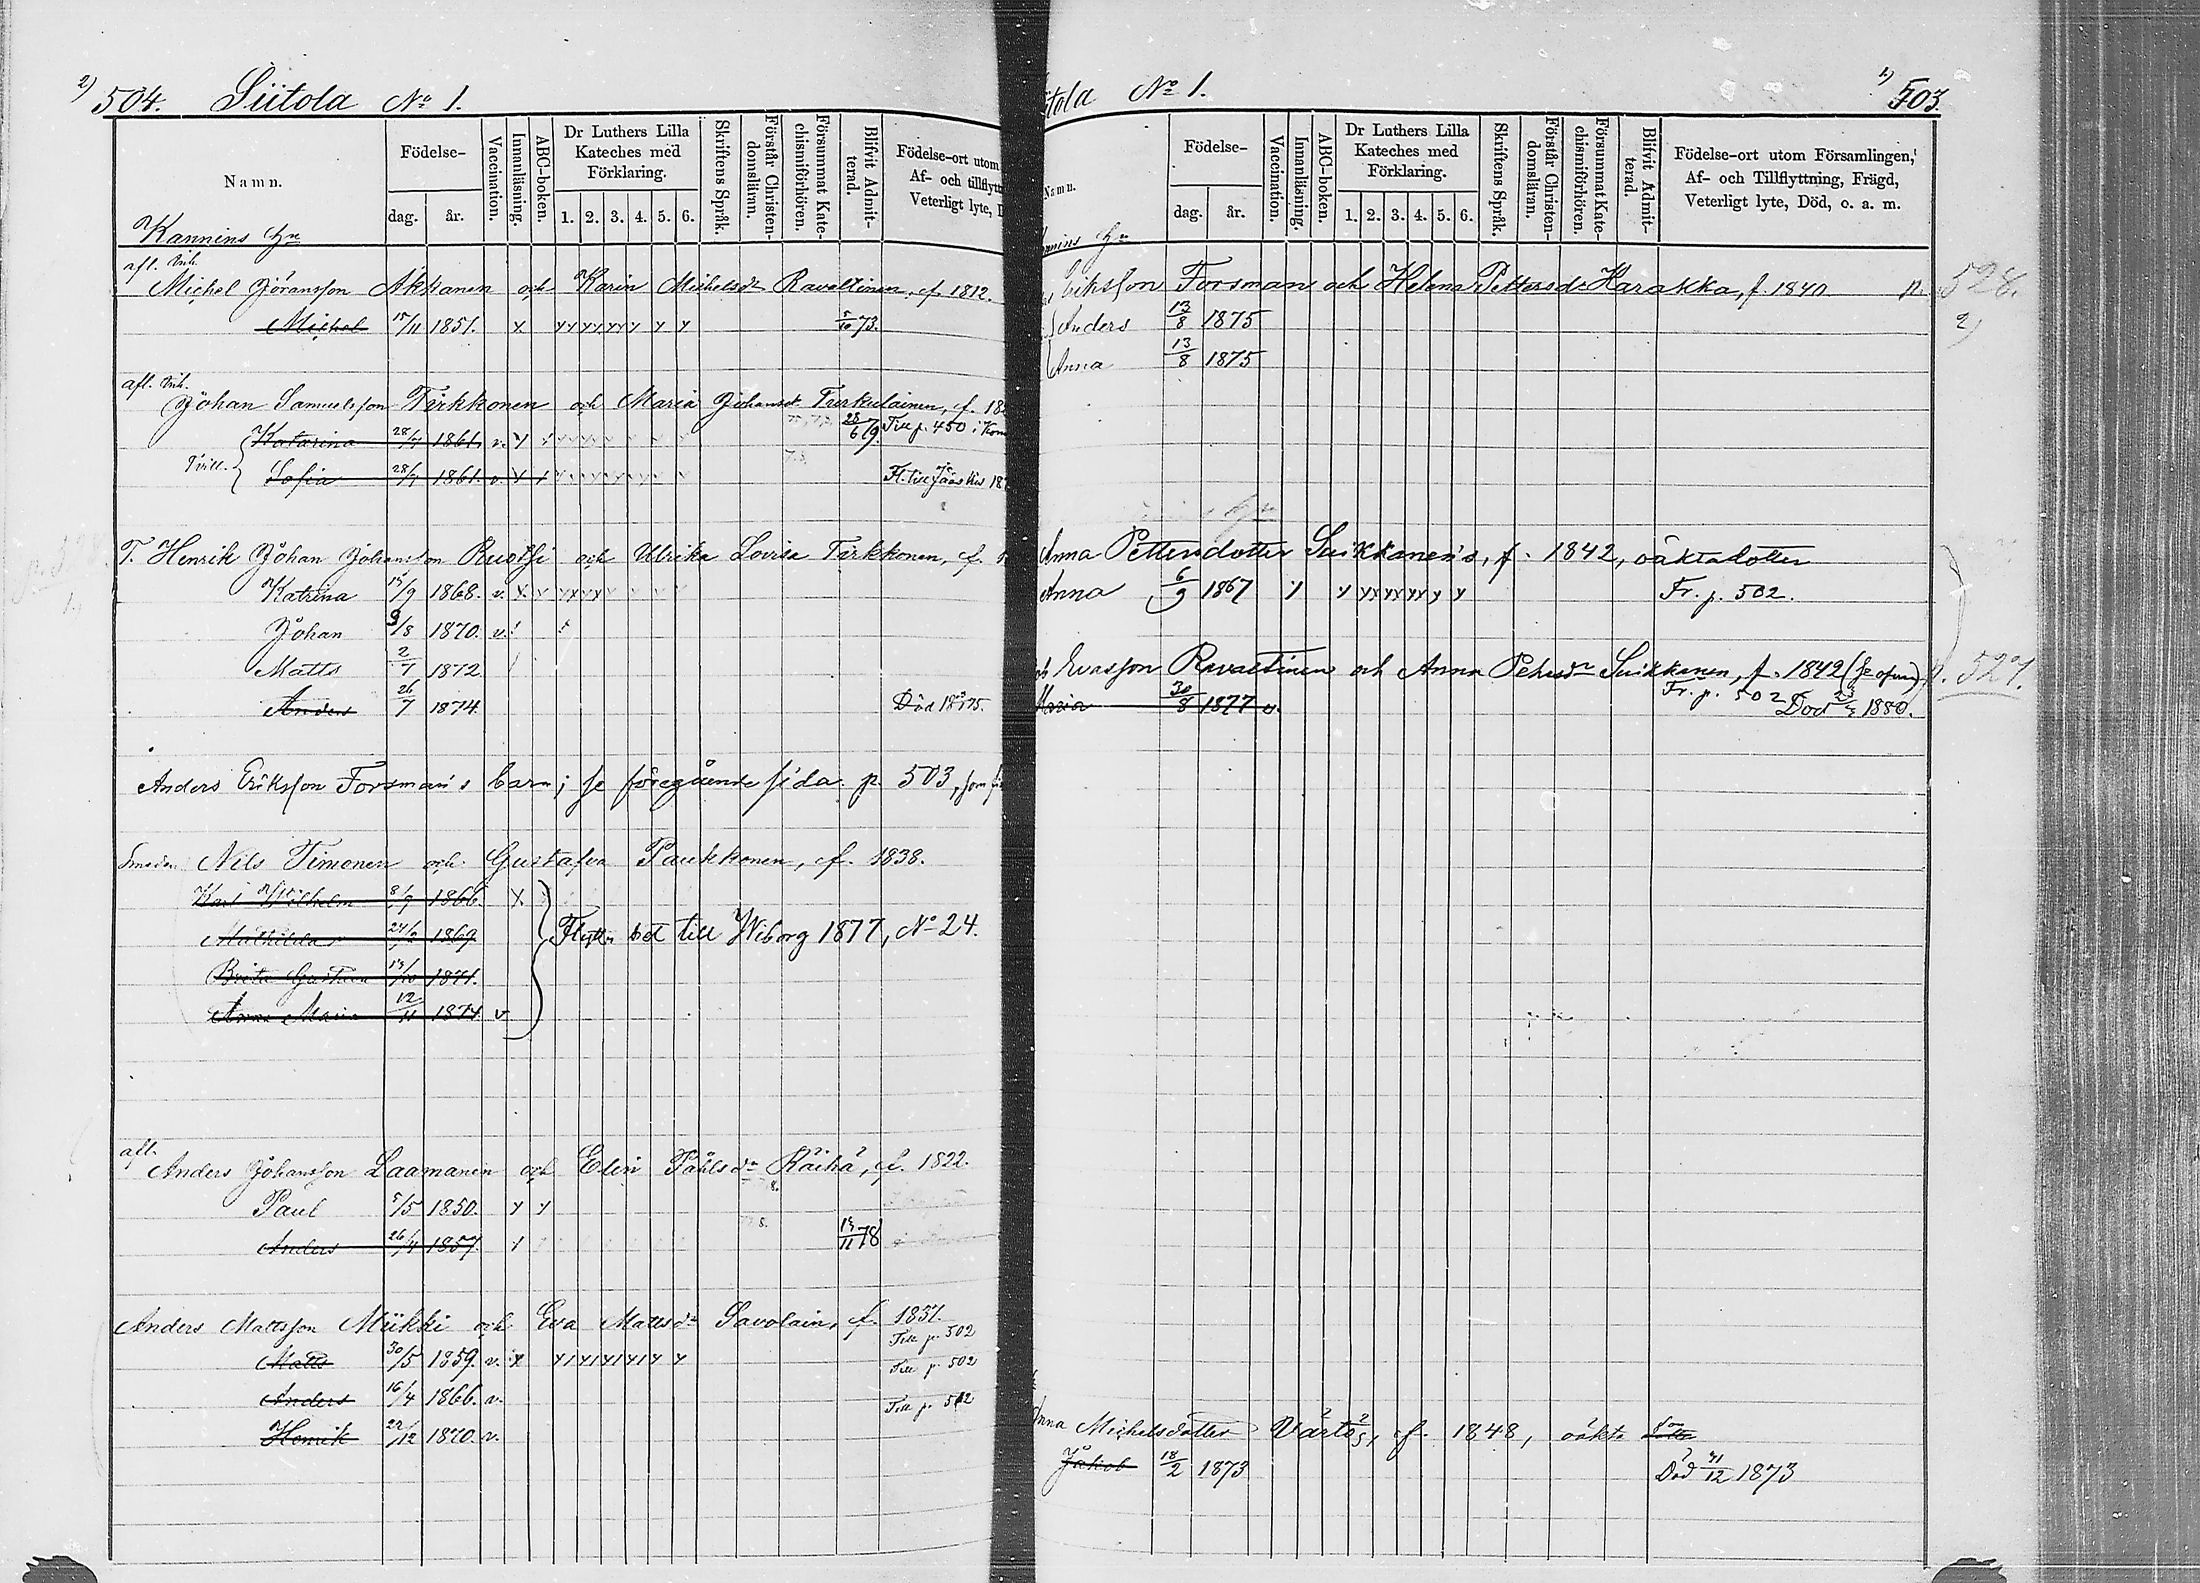 2) 504. Siitola No 1.
Namn.
Födelse-
dag. år.
Vaccination.
Innanläsning.
ABC-boken.
Dr Luthers Lilla Kateches med Förklaring.
1. 2. 3. 4. 5. 6.
Skriftens Språk.
Förstår Christendomsläran.
Försummat Katechismiförhören.
Blifvit Admitterad.
Födelse-ort utom
Af- och tillflytt
Veterligt lyte, D
Kannins hn
afl. Inh.
Michel Jöransson Akkanen och Karin Michelsdr Ravattinen, f. 1812.
Michel 15/11 1851. x 5/10 73.
afl. Inh.
Johan Samuelsson Tirkkonen och Maria Johansdr Turkulainen, f. 18
Katarina 28/7 1861. v. 28/6 79. Till p. 450 i
Tvill.
Sofia 28/7 1861. v. Fl. till Jääskis 18
T. Henrik Johan Johansson Ruotsi och Ulrika Lovisa Tirkkonen, f.
Katrina 15/9 1868. v.
Johan 9/8 1870. v.
Matts 2/7 1872
Anders 26/7 1874. Död 1875.
Anders Eriksson Forsman's barn; se föregående sida p 503, som
Smeden Nils Timonen och Gustafva Paukkonen, f. 1838.
Karl Wilhelm 8/9 1866. x
Mathilda 24/2 1869
Flyttn bet till Wiborg 1877, No 24.
Brita 13/10 1871.
Anna Maria 12/11 1874 v
afl.
Anders Johansson Laamanen och Elin Påhlsdr Räihä, f. 1822.
Paul 5/5 1850. y y
Anders 26/4 1857. 13/11 78
Anders Mattsson Mikki och Eva Mattsdr Savolain, f. 1837.
Till p. 502
Matts 30/5 1859. v. x Till p. 502
Anders 16/4 1866. v. Till p. 502
Henrik 22/12 1870. v.
itola No 1. 1) 503.
Namn.
Födelse-
dag. år.
Vaccination.
Innanläsning.
ABC-boken.
Dr Luthers Lilla Kateches med Förklaring.
1. 2. 3. 4. 5. 6.
Skriftens Språk.
Förstår Christendomsläran.
Försummat Katechismiförhören.
Blifvit Admitterad.
Födelse-ort utom Församlingen,
Af- och Tillflyttning, Frägd,
Veterligt lyte, Död, o. a. m.
nnins hn
Eriksson Forsman och Helena Pettersdr Harakka, f. 1840 p. 528.
Anders 13/8 1875 2)
Anna 13/8 1875
Anna Pettersdotter Suikkanen's, f. 1842, oäkta dotter
Anna 6/9 1867 Fr. p. 502.
Evasson Ravattinen och Anna Petersdr Suikkanen, f. 1842 (se ofvan) p. 527.
Fr. p. 502
Maria 30/8 1877 v. Död 1880.
Anna Michelsdotter Värtö's, f. 1848, oäkta son
Jakob 18/2 1873 Död 31/12 1873